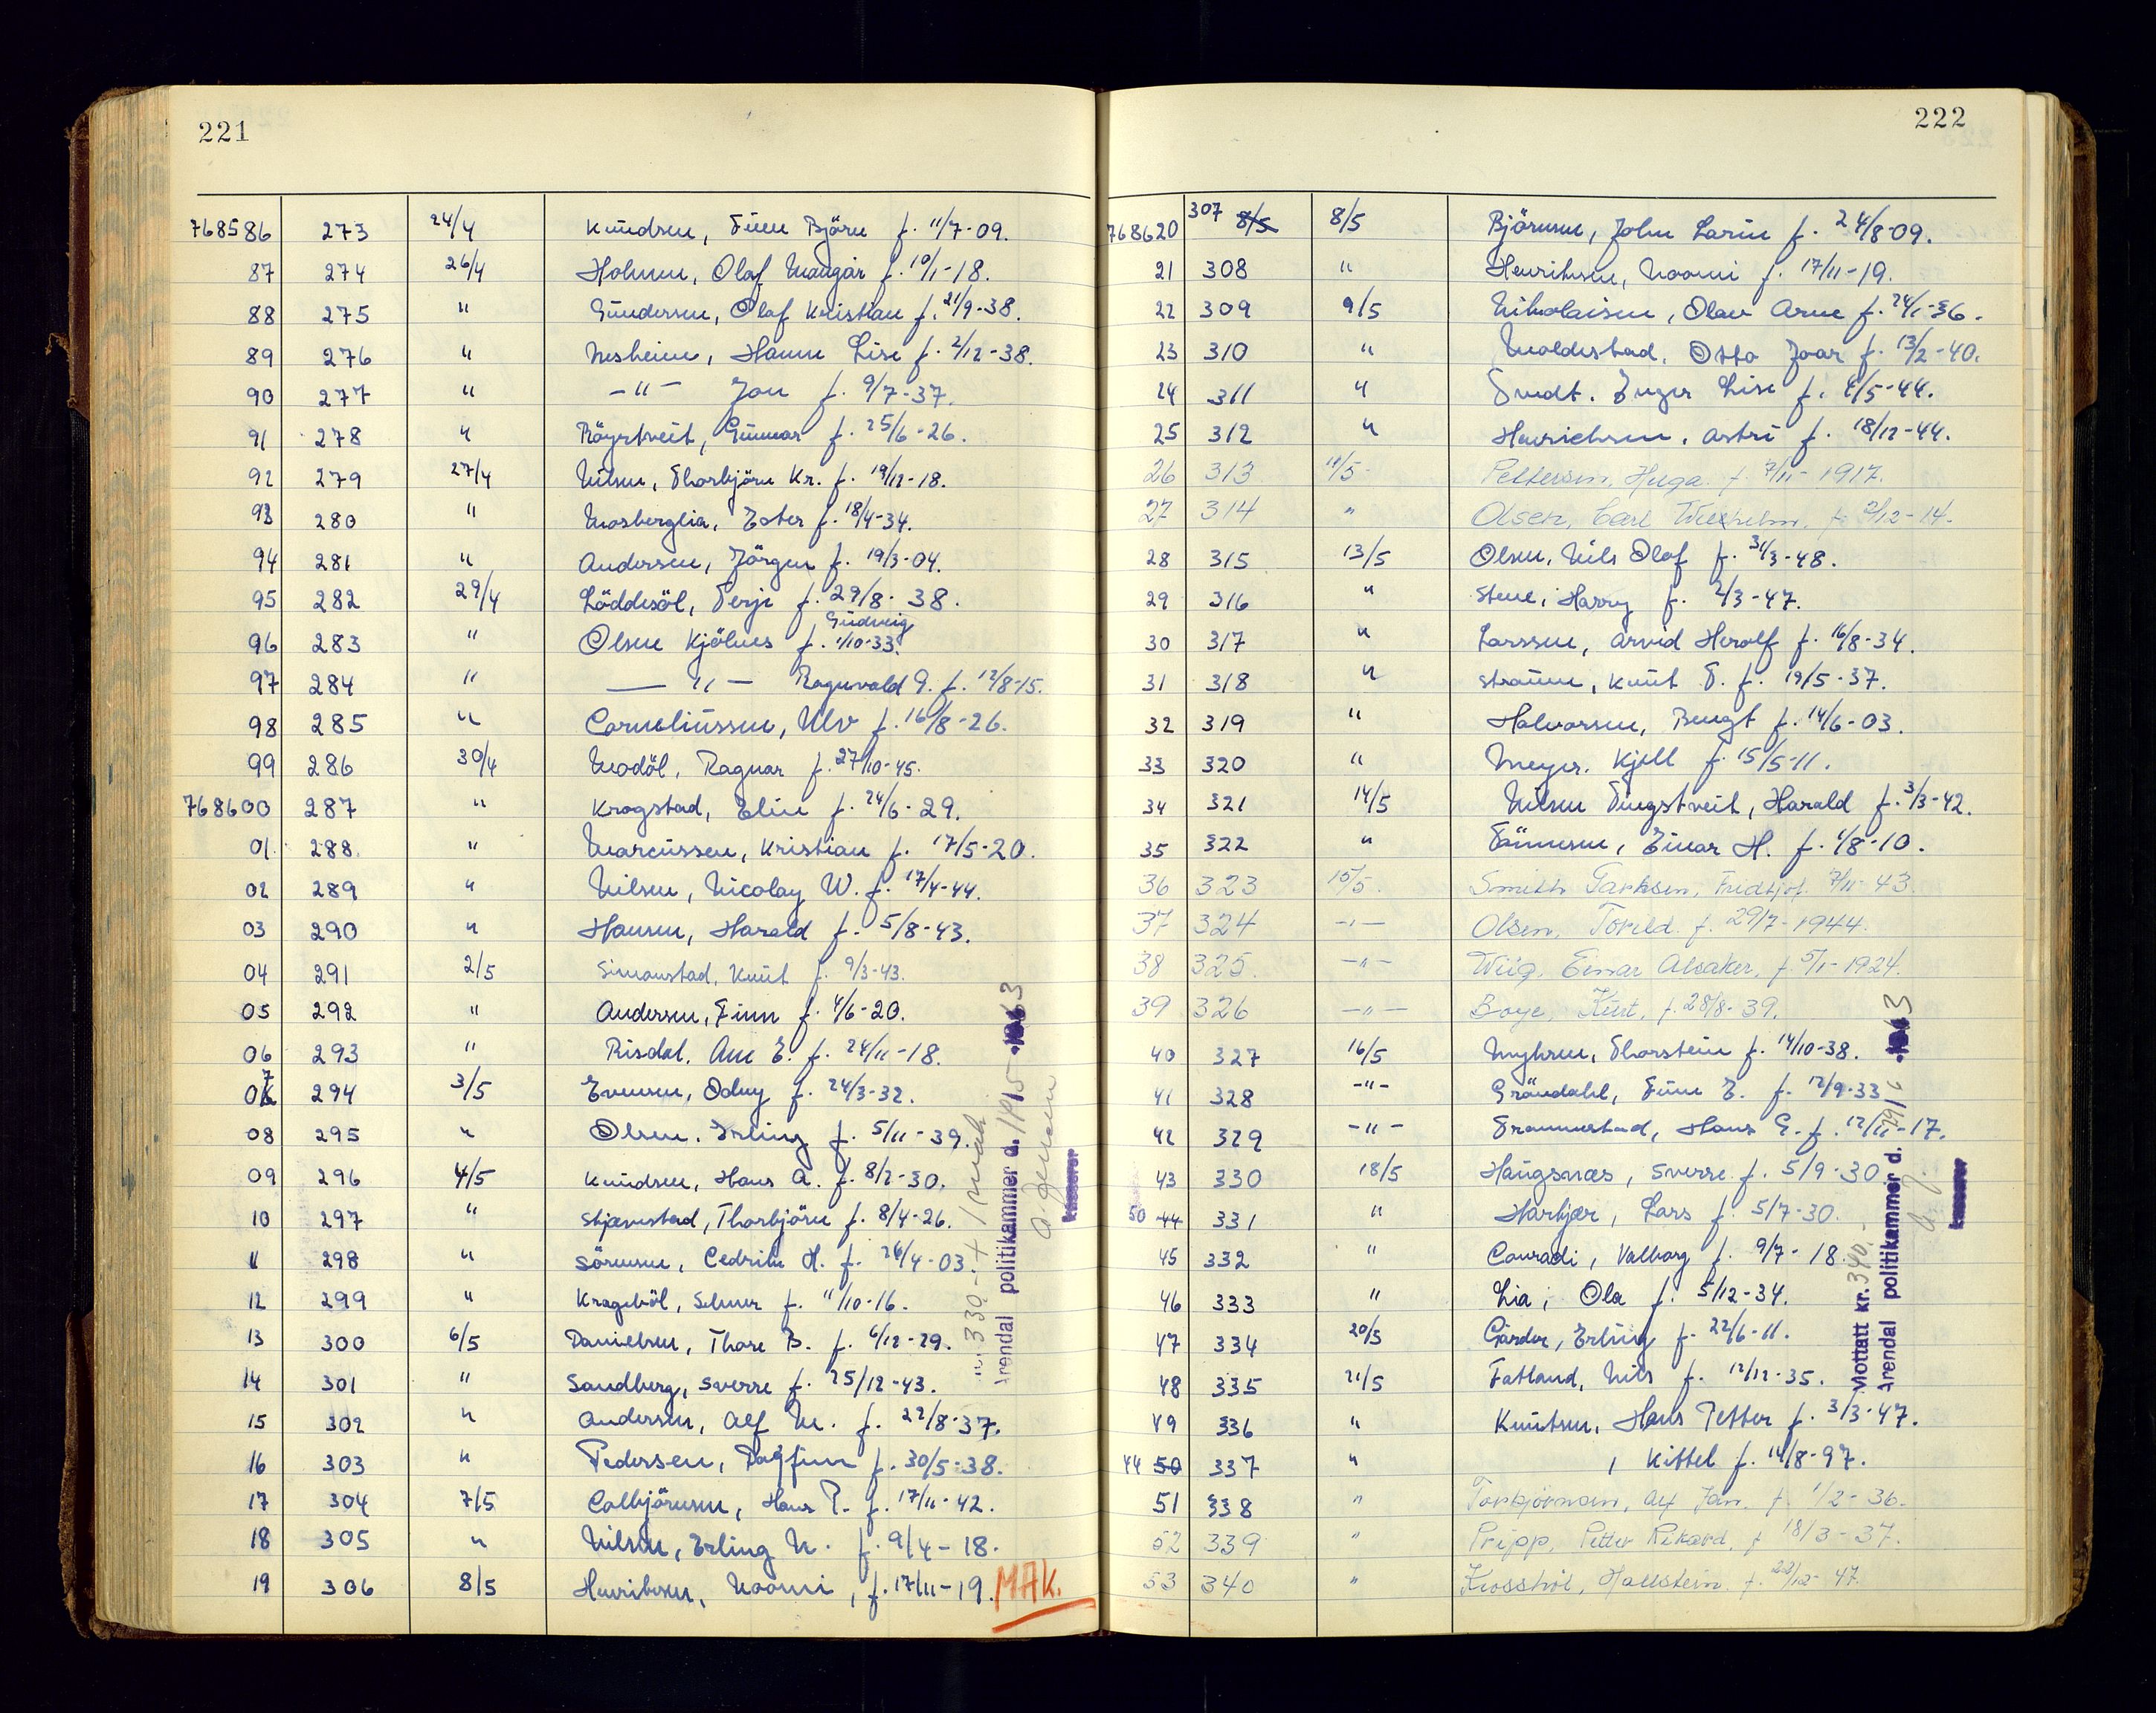 221
768586 273 24/4 Knudsen, Finn Björn f. 11/7-09.
87 274 26/4 Holmen, Olaf Mangar f. 10/1-18.
88 275 " Gundersen, Olaf Kristian f. 21/9-38.
89 276 " Nesheim, Hanne Lise f. 2/12-38.
90 277 " -"- Jon f. 9/7-37.
91 278 " Röyrtveit, Gunnar f. 25/6-26.
92 279 27/4 Nilsen, Thorbjörn Kr. f. 19/12-18.
93 280 " Mosberglia, Ester f. 18/4-34.
94 281 " Andersen, Jörgen f. 19/3-04.
95 282 29/4 Löddesöl, Terje f. 29/8-38.
96 283 " Olsen Kjölnes, Gudveig f. 1/10-33.
97 284 " -"- Ragnvald G. f. 12/8-15.
98 285 " Corneliussen, Ulv f. 16/8-26.
99 286 30/4 Modöl, Ragnar f. 27/10-45.
768600 287 " Krogstad, Elin f. 24/6-29.
01 288. " Marcussen, Kristian f. 17/5-20.
02 289 " Nilsen, Nicolay W. f. 17/4-44.
03 290 " Hansen, Harald f. 5/8-43.
04 291 2/5 Simonstad, Knut f. 9/3-43.
05 292 " Andersen, Finn f. 4/6-20.
06 293 " Risdal. Ane E. f. 24/11-18.
07 294 3/5 Evensen, Odny f. 24/3-32.
08 295 " Olsen. Erling f. 5/11-39.
09 296 4/5 Knudsen, Hans A. f. 8/2-30.
10 297 " Stjernstad, Thorbjörn f. 8/4-26.
11 298 " Sörensen, Cedrik H. f. 26/4-03.
12 299 " Krageböl, Selmer f. 11/10-16.
13 300 6/5 Danielsen, Thore B. f. 6/12-29.
14 301 " Sandberg, Sverre f. 25/12-43.
15 302 " Andersen, Alf M. f. 22/8-37.
16 303 " Pedersen, Dagfinn f. 30/5-38.
17 304 7/5 Colbjörnsen, Hans P. f. 17/11-42.
18 305 " Nilsen, Erling N. f. 9/4-18.
19 306 8/5 Henriksen, Noomi, f. 17/11-19. MAK.
330.- + 1 mak
Arendal politikammer d. 14/5 1963
A. Jensen
kasserer
222
768620 307 8/5 8/5 Björnsen, John Larin f. 24/8-09.
21 308 " Henriksen, Noomi f. 17/11-19.
22 309 9/5 Nikolaisen, Olav Arne f. 24/1-36.
23 310 " Moldestad, Otto Joar f. 13/2-40.
24 311 " Tvedt. Inger Lise f. 4/5-44.
25 312 " Henrichsen. Astri f. 18/12-44.
26 313 11/5 Pettersen, Huga f. 7/11-1917.
27 314 " Olsen, Carl Wilhelm, f. 2/12-14.
28 315 13/5 Olsen, Nils Olaf f. 31/3-48.
29 316 " Stene, Harry f. 2/3-47.
30 317 " Larssen, Arvid Herolf f. 16/8-34.
31 318 " Straume, Knut T. f. 19/5-37.
32 319 " Halvorsen, Bengt f. 14/6-03.
33 320 " Meyer. Kjell f. 15/5-11.
34 321 14/5 Nilsen Tingstveit, Harald f. 3/3-42.
35 322 " Tönnesen, Einar H. f. 1/8-10.
36 323 15/5. Smith Tarksen, Fredtjof. 7/11-43.
37 324 -"- Olsen, Torild. f. 29/7-1944.
38 325. -"- Wiig, Einar Alsaker, f. 5/1-1924.
39 326 -"- Boye, Kurt, f. 28/8-39.
40 327 16/5 Myhren, Thorstein f. 14/10-38.
41 328 -"- Gröndahl, Finn E. f. 12/9-33
42 329 -"- Trommestad, Hans G. f. 12/11-17.
43 330 18/5 Haugsnæs, Sverre f. 5/9-30
50 44 331 " Harkjær, Lars f. 5/7-30.
45 332 " Conradi, Valborg f. 9/7-18.
46 333 " Lia, Ola f. 5/12-34.
47 334 20/5 Garder, Erling f. 22/6-11.
48 335 21/5 Fatland, Nils f. 12/12-35.
49 336 " Knutsen, Hans Petter f. 3/3-47.
44 50 337 " , Kittel f. 14/8-97.
51 338 " Torbjörnsen, Alf Jan. f. 1/2-36.
52 339 " Pripp, Petter Rikard, f 18/3-37.
53 340 " Hallstein. f. 22/12-47.
Mottatt kr. 340.-
Arendal politikammer d. 1963
A. J.
kasserer